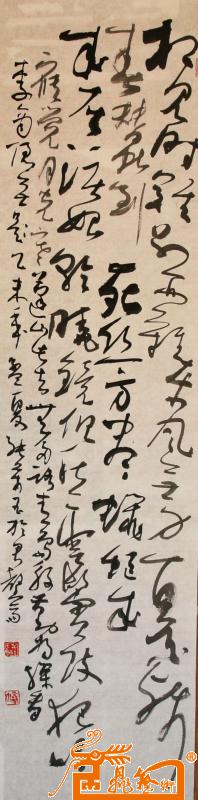 相见时难别亦难东风无力百花残
春蚕到死丝方尽蜡炬成
灰泪始乾晓镜但愁云鬓改夜吟
应觉月光寒蓬山此去无多路青鸟殷勤为探看
李商隐无题乙未年孟夏